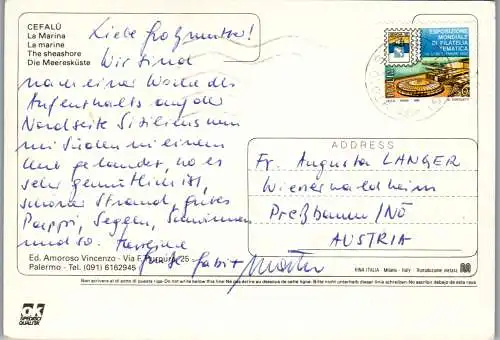 CEFALÙ
La Marina
La marine
The sheashore
Die Meeresküste
Liebe Großmutter!
Wir sind
nach einer Woche des
Aufenthalts auf der
Nordseite Siziliens nun
im Süden in einem
gelandet, wo es
sehr gemütlich ist,
schöner Strand, gutes
Pappi, Segeln, Schwimmen
und so.
Grüße Gabi + Martin
Ed. Amoroso Vincenzo - Via F. 25
Palermo - Tel. (091) 6162945
OK
SPEDISCI
QUALITÀ
ESPOSIZIONE
MONDIALE
DI FILATELIA
TEMATICA
ITALIA
ADDRESS
Fr. Augusta LANGER
Wienerwaldheim
Preßbaum/NÖ
AUSTRIA
KINA ITALIA - Milano - Italy
Non scrivere al di sotto di questa riga - Do not write below this line - Ne pas écrire au dessous de cette ligne - Bitte nicht unterhalb dieser Linie schreiben - No escribir debajo de esta raya